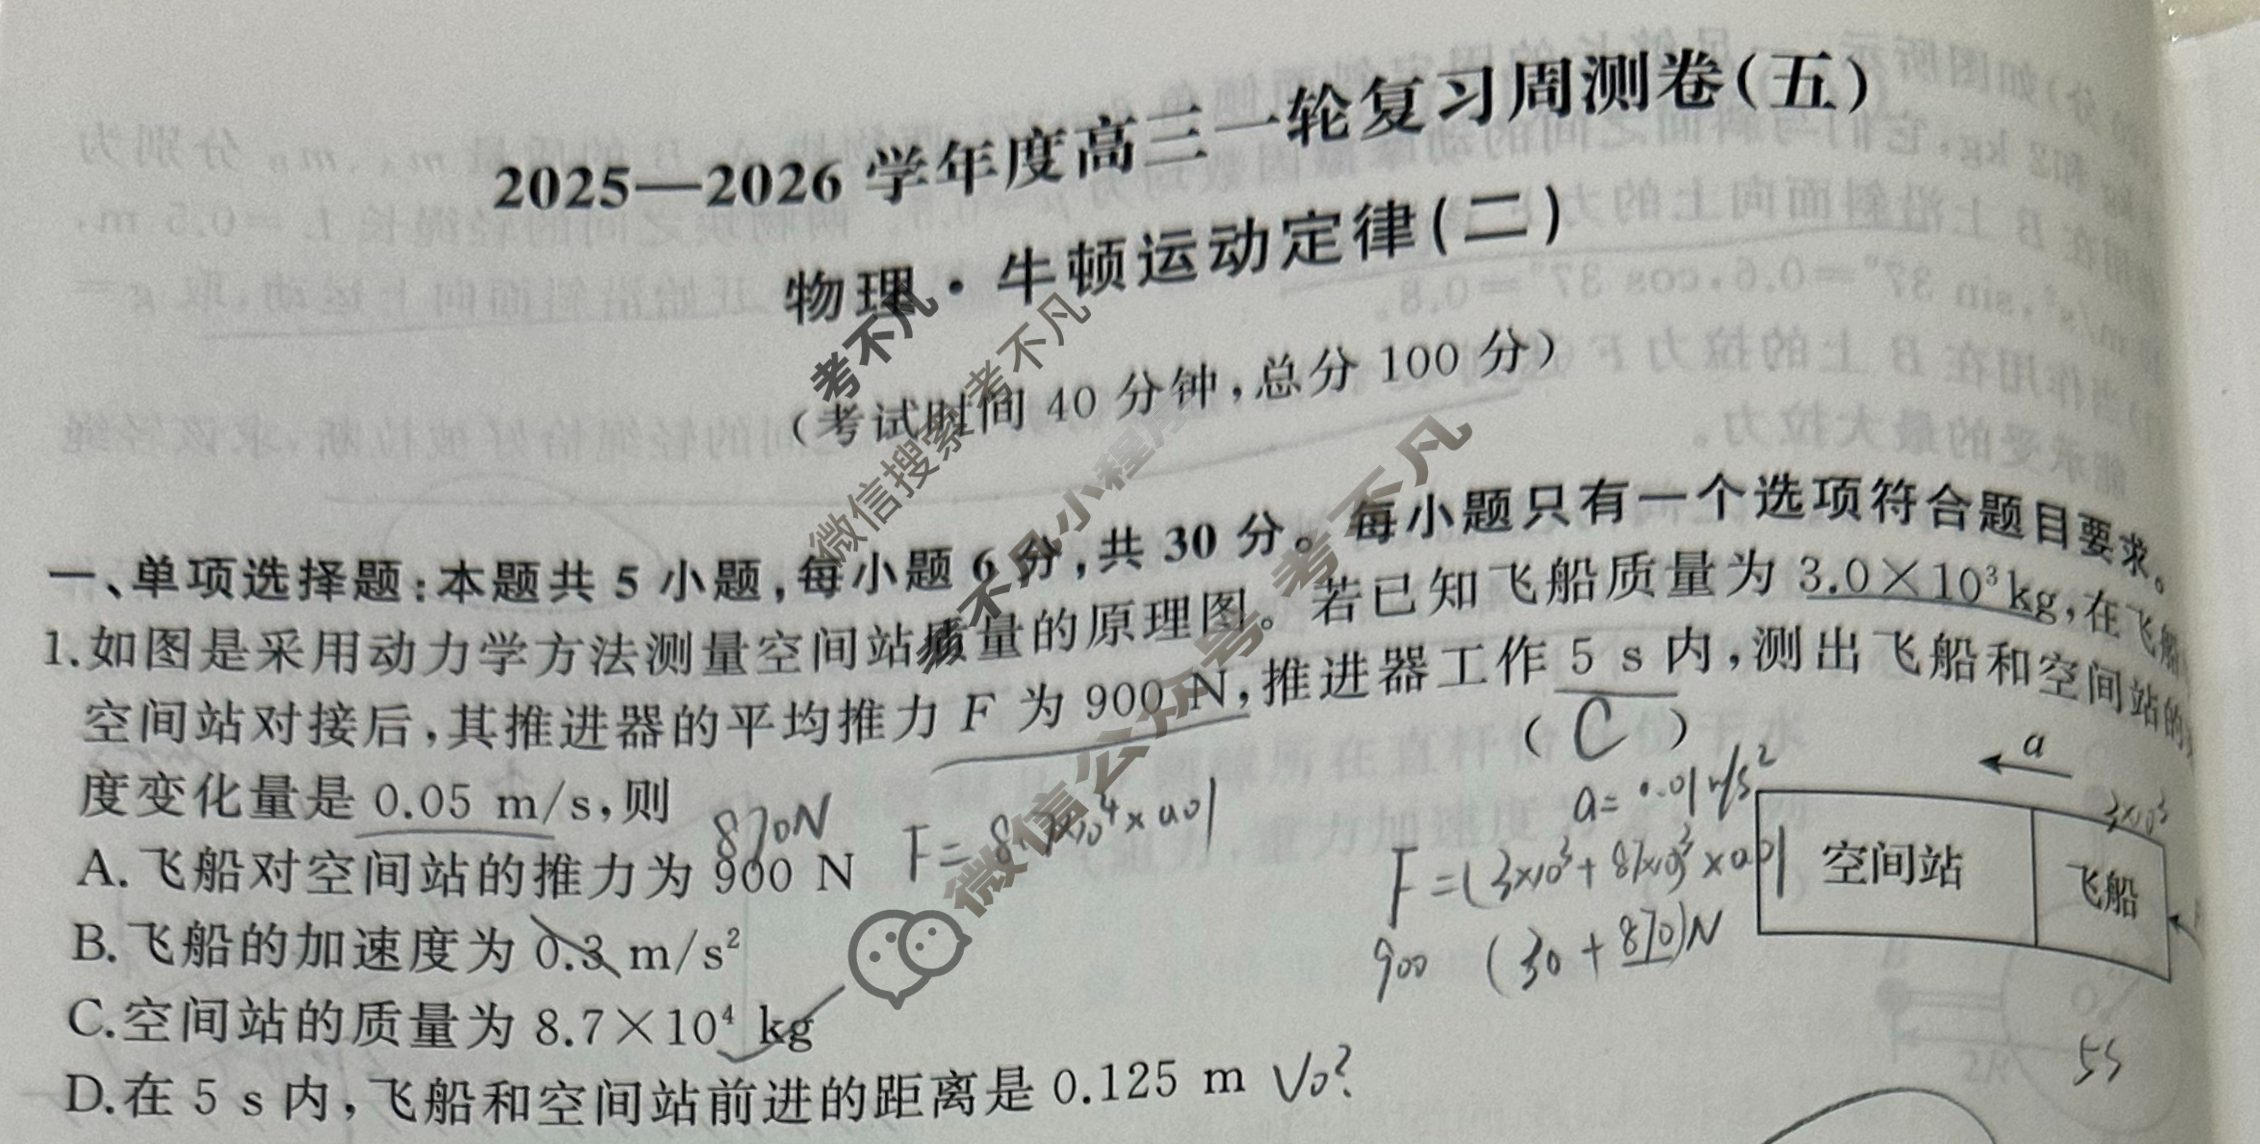 2025—2026 学年度高三一轮复习周测卷(五)
物理·牛顿运动定律(二)
(考试时间 40 分钟,总分 100 分)
一、单项选择题:本题共 5 小题,每小题 6 分,共 30 分。每小题只有一个选项符合题目要求。
1.如图是采用动力学方法测量空间站质量的原理图。若已知飞船质量为 3.0×10³kg,在飞船
空间站对接后,其推进器的平均推力 F 为 900 N,推进器工作 5 s 内,测出飞船和空间站的
度变化量是 0.05 m/s,则
( C )
A.飞船对空间站的推力为 900 N
870N
B.飞船的加速度为 0.3 m/s²
C.空间站的质量为 8.7×10⁴ kg
D.在 5 s 内,飞船和空间站前进的距离是 0.125 m V₀?
a= 0.01 m/s²
F=(3×10³+87×10³×0.01
900 (30+870)N
a
3×10³
空间站
飞船
5s
考不凡
微信搜索考不凡
考不凡小程序
微信公众号 考不凡